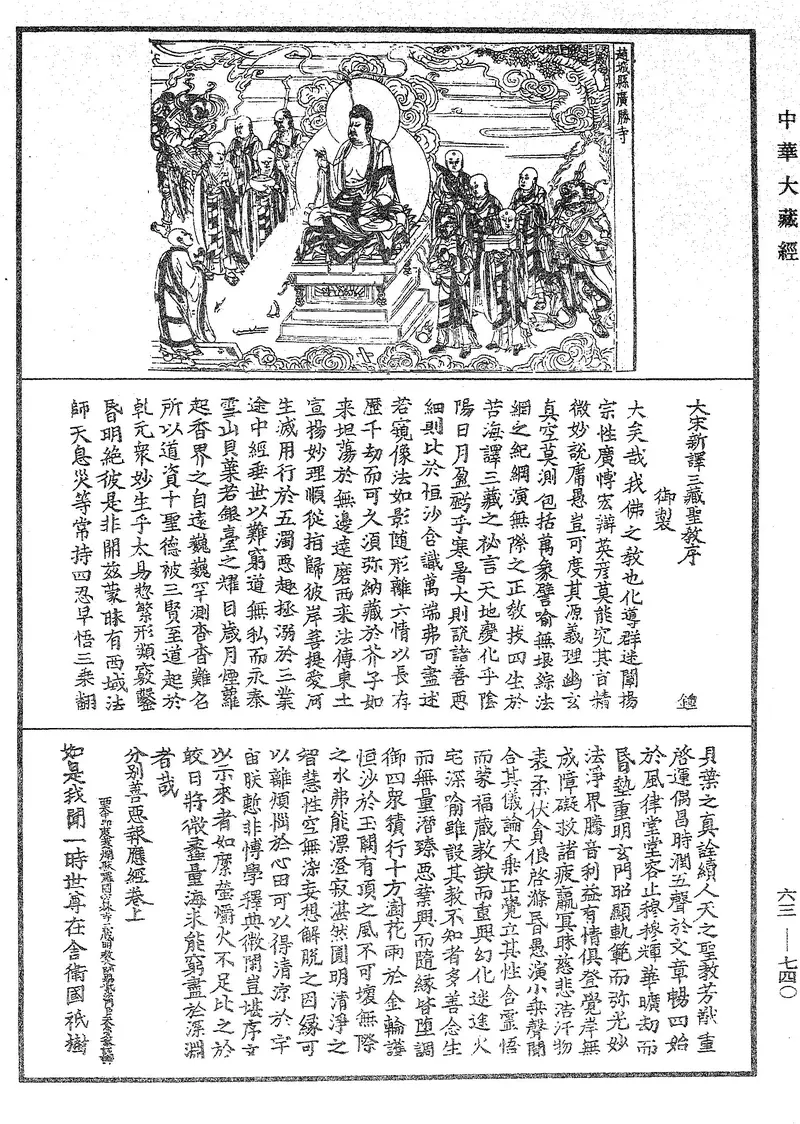 中華大藏經
趙城縣廣勝寺
大宋新譯三藏聖教序
御製
鐘
大矣哉我佛之教也化導群迷闡揚
宗性廣博宏辯英彥莫能究其旨精
微妙說庸愚豈可度其源義理幽玄
真空莫測包括萬象譬喻無垠綜法
網之紀綱演無際之正教拔四生於
苦海譯三藏之秘言天地變化乎陰
陽日月盈虧乎寒暑大則說諸善惡
細則比於恒沙含識萬端弗可盡述
若窺像法如影隨形離六情以長存
歷千劫而可久須弥納藏於芥子如
来坦蕩於無邊達磨西来法傳東土
宣揚妙理順從指歸彼岸菩提愛河
生滅用行於五濁惡趣拯溺於三業
途中經垂世以難窮道無私而永泰
雪山貝葉若銀臺之耀目歲月煙蘿
起香界之自遠巍巍罕測杳杳難名
所以道資十聖德被三賢至道起於
乾元衆妙生乎太易惣繁形類竅鑿
昏明絕彼是非開兹蒙昧有西域法
師天息災等常持四忍早悟三乘翻
貝葉之真詮續人天之聖教芳猷重
啓運偶昌時潤五聲於文章暢四始
於風律堂堂容止穆穆輝華曠劫而
昏墊重明玄門昭顯軌範而弥光妙
法淨界騰音利益有情俱登覺岸無
成障礙救諸疲羸冥昧慈悲浩汗物
表柔伏貪佷啓滌昏愚演小乘聲聞
合其儀論大乘正覺立其性含靈悟
而蒙福藏教缺而重興幻化迷途火
宅深喻雖設其教不知者多善念生
而無量潛臻惡葉興而隨緣皆墮調
御四衆積行十方澍花雨於金輪護
恒沙於玉闕有頂之風不可壞無際
之水弗能漂澄寂湛然圓明清淨之
智慧性空無染妄想解脫之因緣可
以離煩惱於心田可以得清涼於宇
宙朕慙非博學釋典微閑豈堪序文
以示來者如縻螢爝火不足比之於
皎日將微蠡量海未能窮盡於深淵
者哉
分別善惡報應經卷上
如是我聞一時世尊在舍衛國祇樹
六三—七四〇